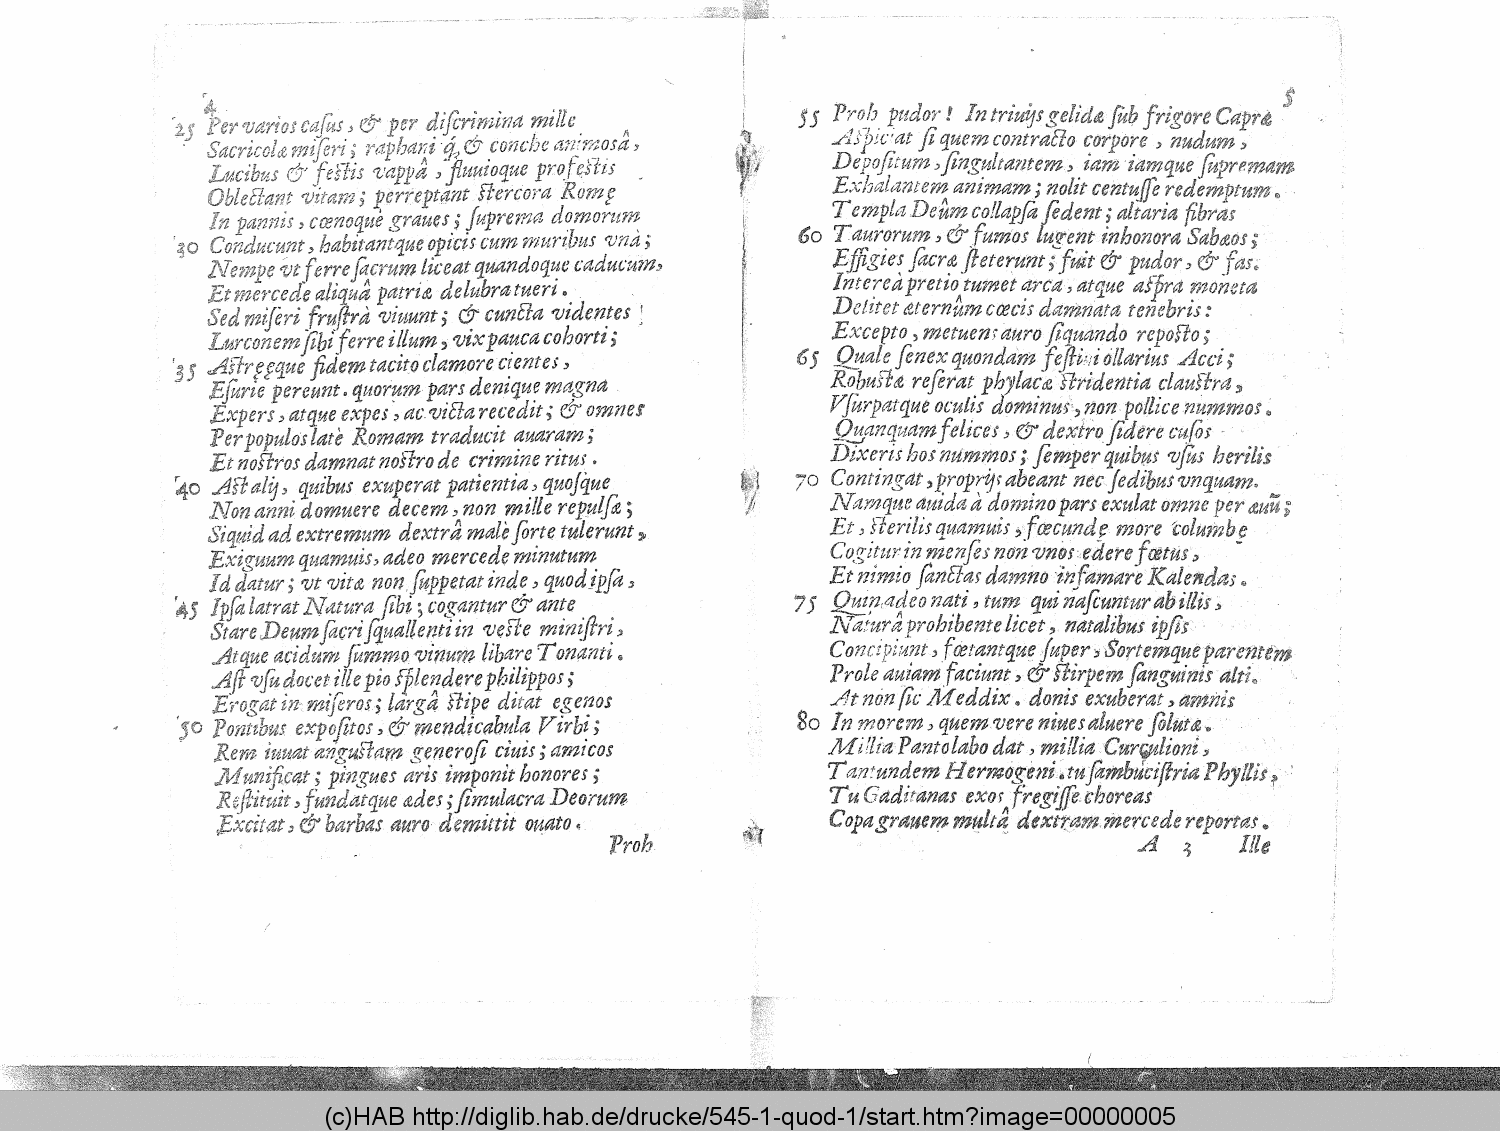 4
25 Per varios caſus, & per diſcrimina mille
Sacricolæ miſeri; raphani q́, & conche animosâ,
Lucibus & feſtis vappâ, fluuioque profeſtis
Oblectant vitam; perreptant ſtercora Romę
In pannis, cœnoquè graues; ſuprema domorum
30 Conducunt, habitantque opicis cum muribus vnà;
Nempe vt ferre ſacrum liceat quandoque caducum,
Et mercede aliquâ patriæ delubra tueri.
Sed miſeri fruſtrà viuunt; & cuncta videntes
Lurconem ſibi ferre illum, vix pauca cohorti;
35 Aſtręęque fidem tacito clamore cientes,
Eſurie pereunt. quorum pars denique magna
Expers, atque expes, ac victa recedit; & omnes
Per populos latè Romam traducit auaram;
Et noſtros damnat noſtro de crimine ritus.
40 Aſt alij, quibus exuperat patientia, quoſque
Non anni domuere decem, non mille repulſæ;
Siquid ad extremum dextrâ malè ſorte tulerunt,
Exiguum quamuis, adeo mercede minutum
Id datur; vt vitæ non ſuppetat inde, quod ipſa,
45 Ipſa latrat Natura ſibi; cogantur & ante
Stare Deum ſacri ſquallenti in veſte miniſtri,
Atque acidum ſummo vinum libare Tonanti.
Aſt vſu docet ille pio ſplendere philippos;
Erogat in miſeros; largâ ſtipe ditat egenos
50 Pontibus expoſitos, & mendicabula Virbi;
Rem iuuat anguſtam generoſi ciuis; amicos
Munificat; pingues aris imponit honores;
Reſtituit, fundatque ædes; ſimulacra Deorum
Excitat, & barbas auro demittit ouato.
Proh
5
55 Proh pudor! In triuijs gelidæ ſub frigore Capræ
Aſpiciat ſi quem contracto corpore, nudum,
Depoſitum, ſingultantem, iam iamque ſupremam
Exhalantem animam; nolit centuſſe redemptum.
Templa Deûm collapſa ſedent; altaria fibras
60 Taurorum, & fumos lugent inhonora Sabæos;
Effigies ſacræ ſteterunt; fuit & pudor, & fas.
Intereà pretio tumet arca, atque aſpra moneta
Delitet æternùm cœcis damnata tenebris:
Excepto, metuens auro ſiquando repoſto;
65 Quale ſenex quondam feſtiui ollarius Acci;
Robuſtæ reſerat phylacæ ſtridentia clauſtra,
Vſurpatque oculis dominus, non pollice nummos.
Quanquam felices, & dextro ſidere cuſos
Dixeris hos nummos; ſemper quibus vſus herilis
70 Contingat, proprijs abeant nec ſedibus vnquam.
Namque auida à domino pars exulat omne per æuū;
Et, ſterilis quamuis, fœcundę more columbę
Cogitur in menſes non vnos edere fœtus,
Et nimio ſanctas damno infamare Kalendas.
75 Quin adeo nati, tum qui naſcuntur ab illis,
Naturâ prohibente licet, natalibus ipſis
Concipiunt, fœtantque ſuper, Sortemque parentem
Prole auiam faciunt, & ſtirpem ſanguinis alti.
At non ſic Meddix. donis exuberat, amnis
80 In morem, quem vere niues aluere ſolutæ.
Millia Pantolabo dat, millia Curculioni,
Tantundem Hermogeni. tu ſambuciſtria Phyllis,
Tu Gaditanas exos fregiſſe choreas
Copa grauem multâ dextram mercede reportas.
A 3 Ille
(c)HAB http://diglib.hab.de/drucke/545-1-quod-1/start.htm?image=00000005